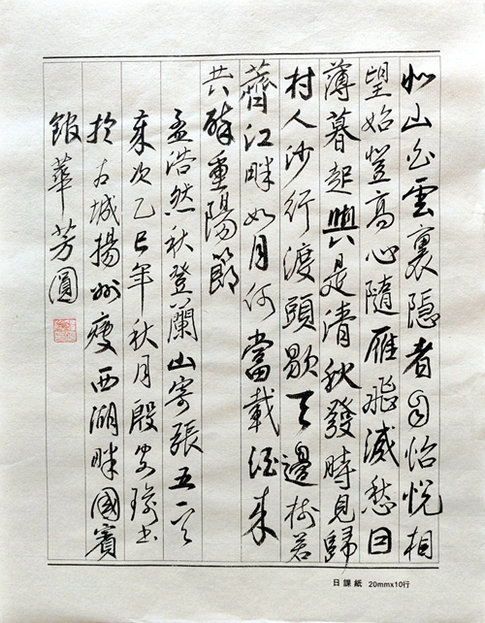 北山白雲裏隱者自怡悅相
望始登高心隨雁飛滅愁因
薄暮起興是清秋發時見歸
村人沙行渡頭歇天邊樹若
薺江畔如月何當載酒來
共醉重陽節
孟浩然秋登蘭山寄張五一首
歲次乙巳年秋月殷书
於古城揚州瘦西湖畔國賓
館華芳園
日課紙 20mmx10行